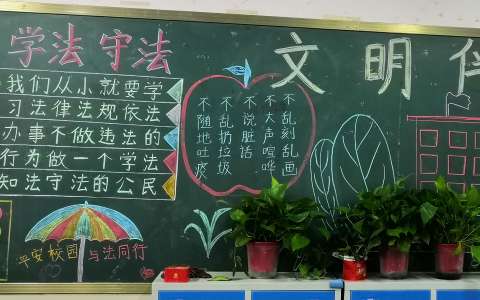 学法守法
我们从小就要学
习法律法规依法
办事不做违法的
行为做一个学法
知法守法的公民
平安校园
与法同行
不乱刻乱画
不大声喧哗
不说脏话
不乱扔垃圾
不随地吐痰
文明伴